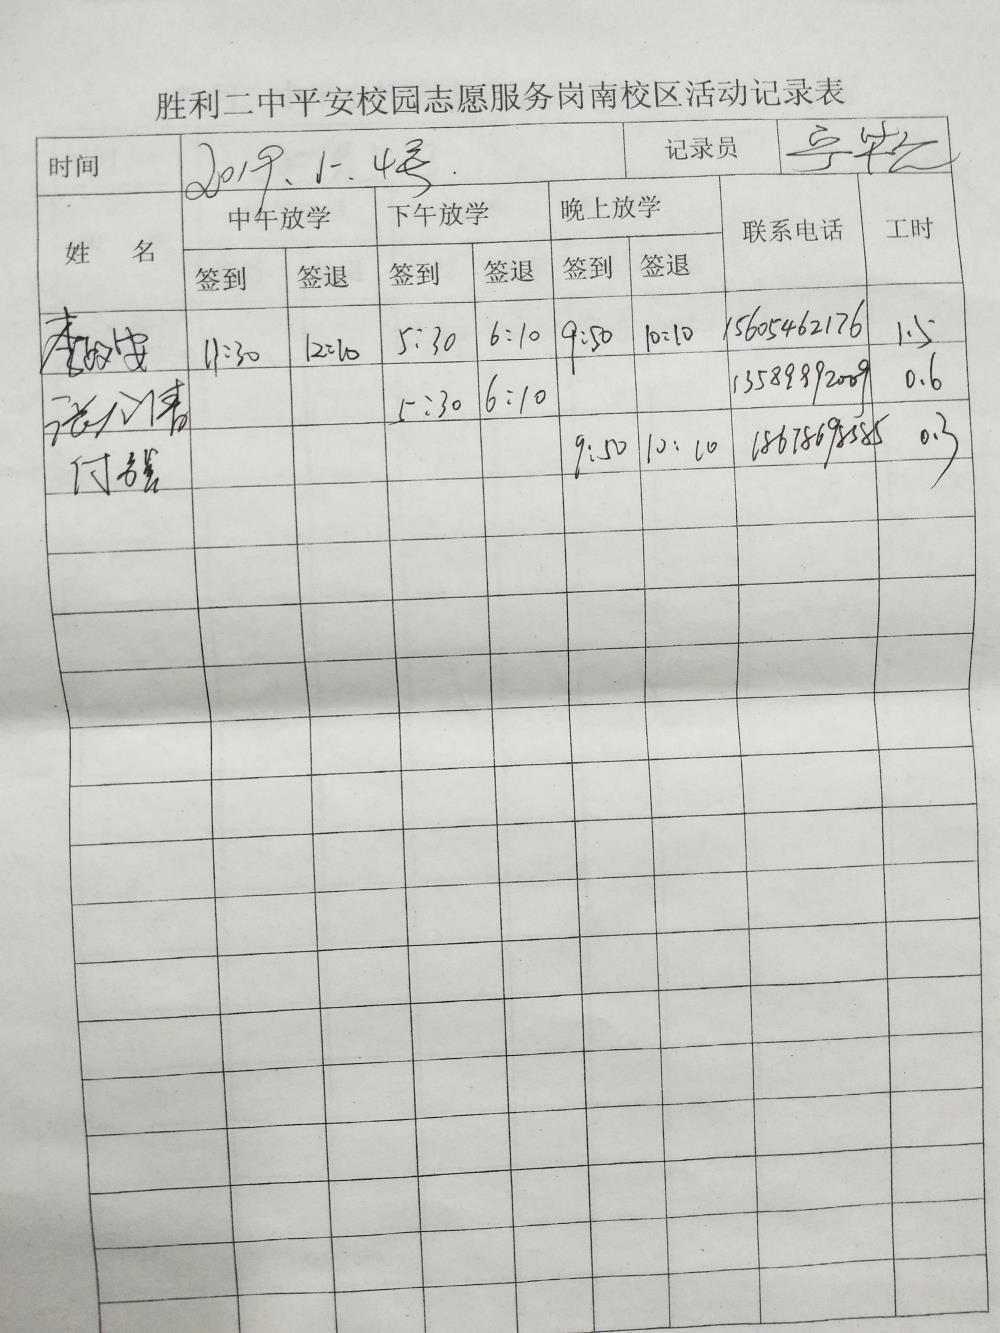 胜利二中平安校园志愿服务岗南校区活动记录表
时间 2019.1.4号. 记录员
姓 名 中午放学 下午放学 晚上放学 联系电话 工时
签到 签退 签到 签退 签到 签退
11:30 12:10 5:30 6:10 9:50 10:10 15605462176 1.5
5:30 6:10 13589992009 0.6
付 9:50 10:10 18678698585 0.3